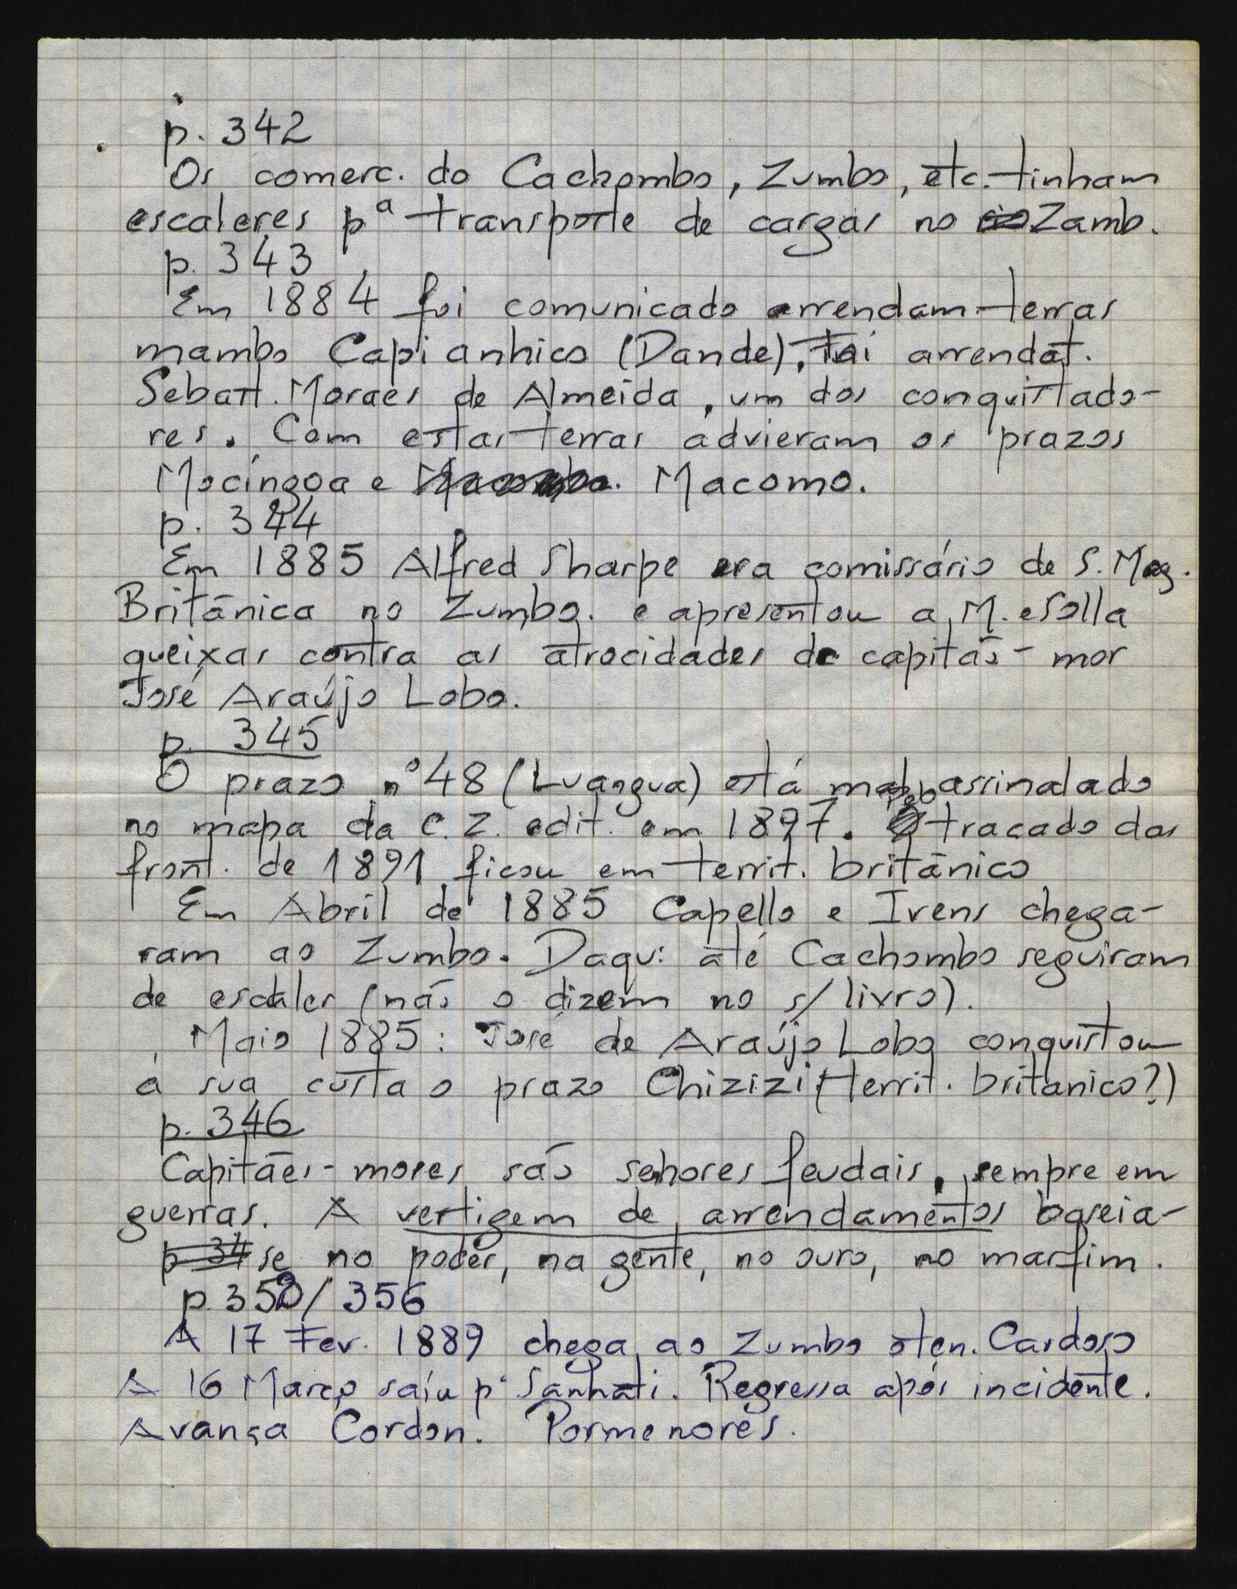 p. 342
Os comerc. do Cachombo, Zumbo, etc. tinham
escaleres pª transporte de cargas no Zamb.
p. 343
Em 1884 foi comunicado arrendam terras
mambo Capianhico (Dande). Foi arrendat.
Sebast. Moraes de Almeida, um dos conquistado-
res. Com estas terras advieram os prazos
Mocíngoa e Macomo.
p. 344
Em 1885 Alfred Sharpe era comissário de S. Mag.
Britânica no Zumbo. e apresentou a M. eSolla
queixas contra as atrocidades do capitão-mor
José Araújo Lobo.
p. 345
O prazo nº 48 (Luangua) está mal assinalado
no mapa da C. Z. edit. em 1897. Pelo tracado das
front. de 1891 ficou em territ. britânico
Em Abril de 1885 Capello e Ivens chega-
ram ao Zumbo. Daqui até Cachombo seguiram
de escaler (não o dizem no s/ livro).
Maio 1885: José de Araújo Lobo conquistou
à sua custa o prazo Chizizi (territ. britanico?)
p. 346
Capitães-mores são senhores feudais, sempre em
guerras. A vertigem de arrendamentos baseia-
se no poder, na gente, no ouro, no marfim.
p. 352/356
A 17 Fev. 1889 chega ao Zumbo o ten. Cardoso
A 16 Março saíu pª Sanhati. Regressa após incidente.
Avança Cordon. Pormenores.